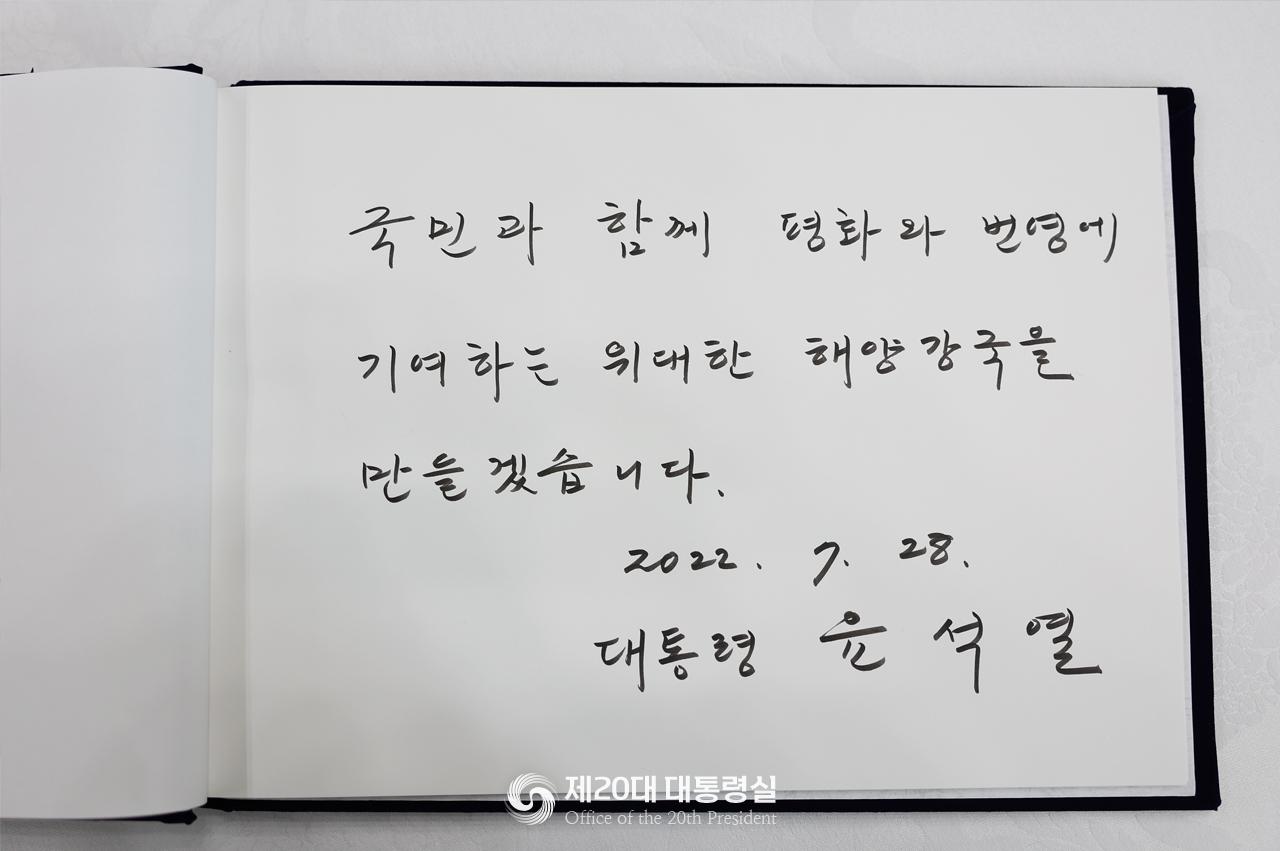 국민과 함께 평화와 번영에
기여하는 위대한 해양강국을
만들겠습니다.
2022. 7. 28.
대통령 윤석열
제20대 대통령실
Office of the 20th President